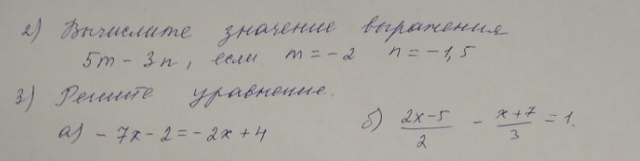 2) Вычислите значение выражения
5m - 3n, если m = -2 n = -1,5
3) Решите уравнение.
а) -7x-2=-2x+4 б) \frac{2x-5}{2} - \frac{x+7}{3} = 1.